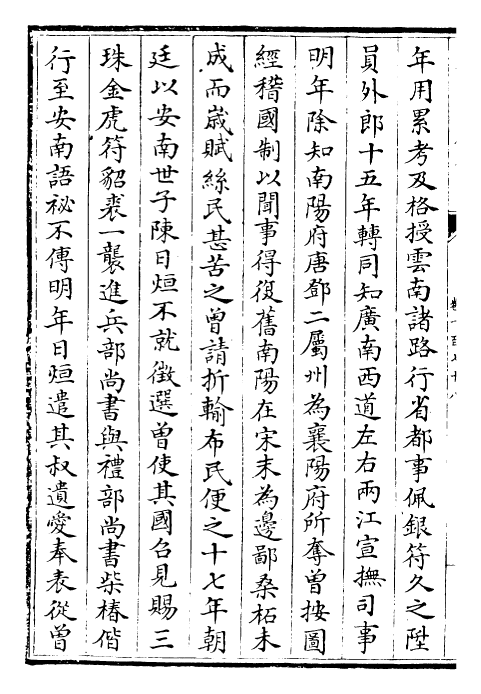 年用累考及格授雲南諸路行省都事佩銀符久之陞
員外郎十五年轉同知廣南西道左右兩江宣撫司事
明年除知南陽府唐鄧二屬州為襄陽府所奪曾按圖
經稽國制以聞事得復舊南陽在宋末為邊鄙桑柘未
成而歲賦絲民甚苦之曾請折輸布民便之十七年朝
廷以安南世子陳日烜不就徵選曾使其國召見賜三
珠金虎符貂裘一襲進兵部尚書與禮部尚書柴椿偕
行至安南語祕不傳明年日烜遣其叔遺愛奉表從曾